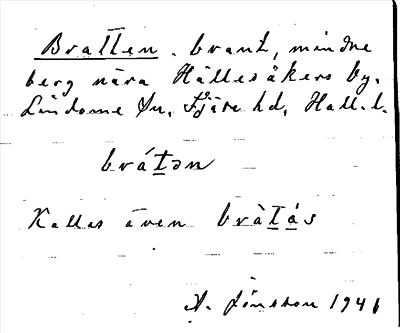 Bratten. brant, mindre
berg nära Hällesåkers by.
Lindome sn, Fjäre hd, Hall. l.
brátən
Kallas även bràtás
A. Jönsson 1941